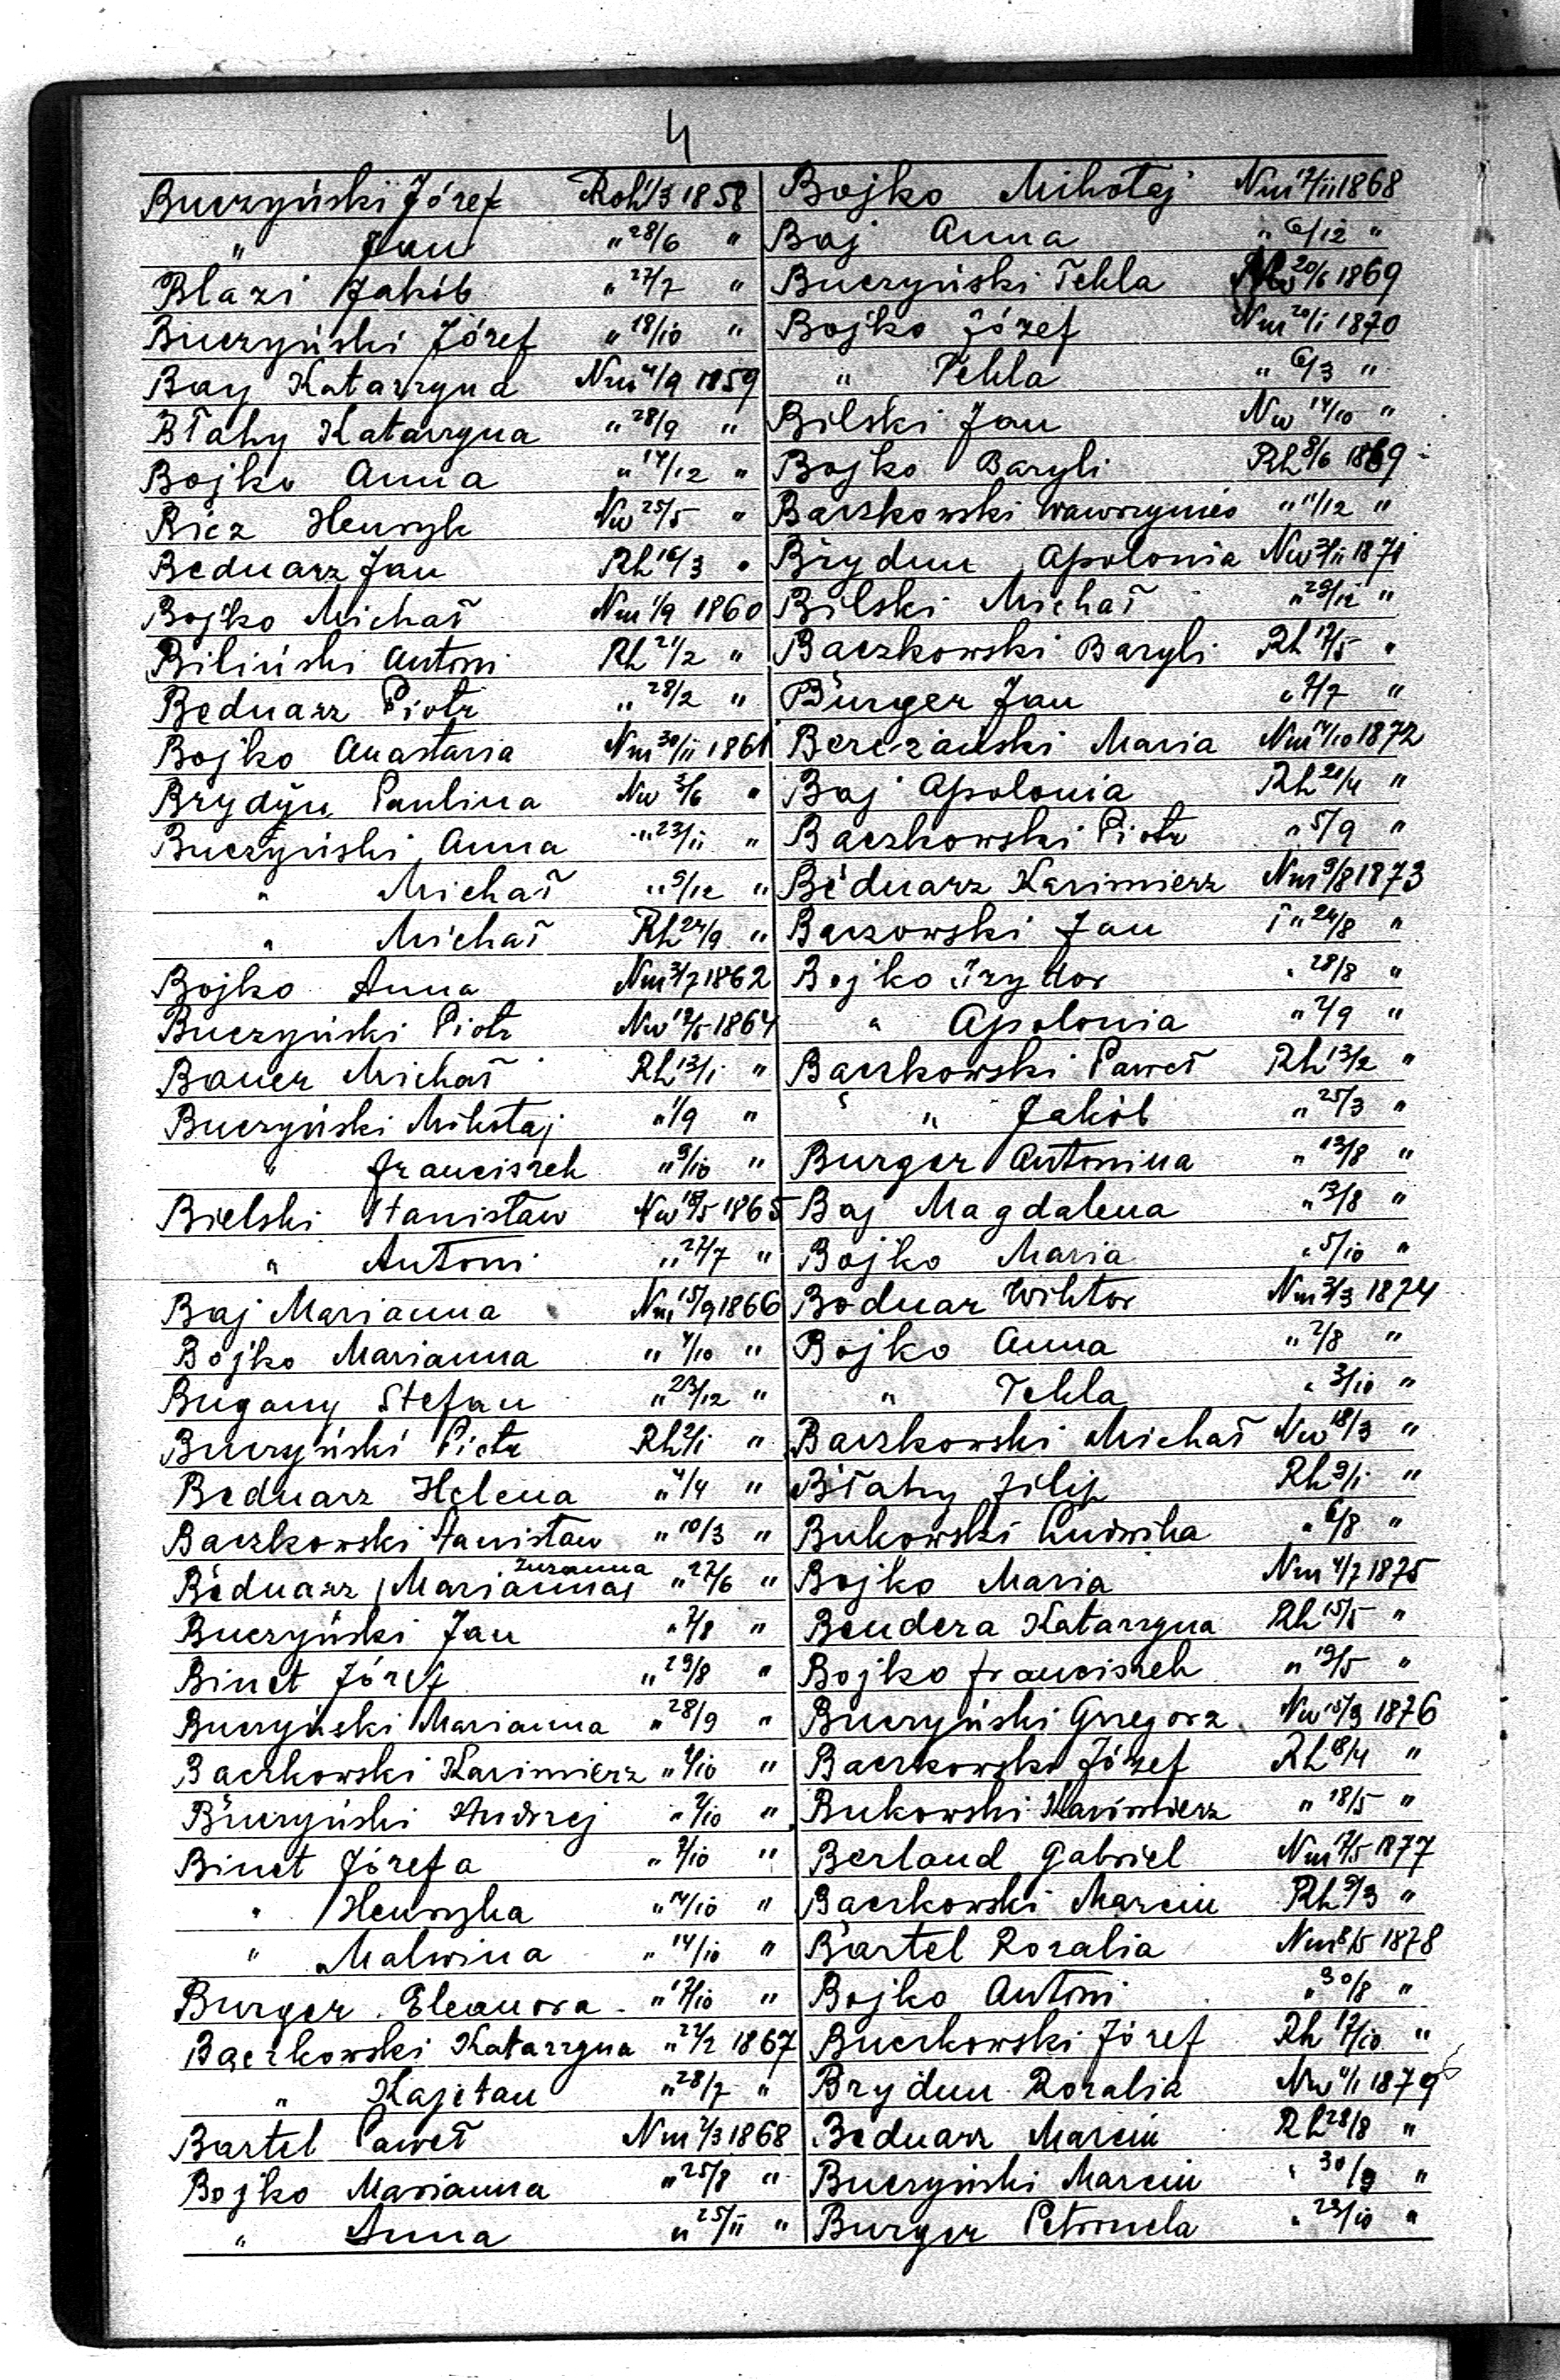 4
Buczyński Józef Roh 1/3 1858
" Jan " 28/6 "
Blazi Jakób " 27/7 "
Buczyński Józef " 18/10 "
Bay Katarzyna Nm 4/9 1859
Błahy Katarzyna " 28/9 "
Bojko Anna " 14/12 "
Henryk Nw 25/5 "
Bednarz Jan Rh 16/3 "
Bojko Michał Nm 1/9 1860
Biliński Antoni Rh 21/2 "
Bednarz Piotr " 28/2 "
Bojko Anastazia Nm 30/11 1861
Brydyn Paulina Nw 3/6 "
Buczyński Anna " 23/11 "
" Michał " 9/12 "
" Michał Rh 24/9 "
Bojko Anna Nm 3/7 1862
Buczyński Piotr Nw 12/5 1864
Bauer Michał Rh 13/1 "
Buczyński Mikołaj " 1/9 "
" Franciszek " 9/10 "
Bielski Stanisław Nw 18/5 1865
" Antoni " 27/7 "
Baj Marianna Nm 15/9 1866
Bojko Marianna " 4/10 "
Bugany Stefan " 23/12 "
Buczyński Piotr Rh 2/1 "
Bednarz Helena " 4/4 "
Baczkowski Stanisław " 10/3 "
Bednarz Marianna Zuzanna " 27/6 "
Buczyński Jan " 7/8 "
Binet Józef " 29/8 "
Buczyński Marianna " 28/9 "
Baczkowski Kazimierz " /10 "
Buczyński Andrzej " 7/10 "
Binet Józefa " 7/10 "
" Henryka " 14/10 "
" Malwina " 14/10 "
Burger Eleanora " 17/10 "
Baczkowski Katarzyna " 27/2 1867
" Kajetan " 28/7 "
Bartel Paweł Nm 7/3 1868
Bojko Marianna " 25/8 "
" Anna " 25/11 "
Bojko Mikołaj Nm 17/11 1868
Baj Anna " 6/12 "
Buczyński Tekla 20/6 1869
Bojko Józef Nm 20/1 1870
" Tekla " 6/3 "
Bilski Jan Nw 14/10 "
Bojko Bazyli Rh 8/6 1869
Baczkowski Wawrzyniec " 11/12 "
Brydun Apolonia Nw 3/11 1871
Bilski Michał " 28/12 "
Baczkowski Bazyli Rh 17/5 "
Burger Jan " 7/7 "
Bereżański Maria Nm 14/10 1872
Baj Apolonia Rh 21/4 "
Baczkowski Piotr " 5/9 "
Bednarz Kazimierz Nm 9/8 1873
Baczowski Jan " 24/8 "
Bojko Izydor " 28/8 "
" Apolonia " 7/9 "
Baczkowski Paweł Rh 13/2 "
" Jakób " 25/3 "
Burger Antonina " 13/8 "
Baj Magdalena " 13/8 "
Bojko Maria " 5/10 "
Bodnar Wiktor Nm 3/3 1874
Bojko Anna " 2/8 "
" Tekla " 3/10 "
Baczkowski Michał Nw 18/3 "
Błahy Filip Rh 9/1 "
Bukowski Ludwika " 6/8 "
Bojko Maria Nm 4/7 1875
Bendera Katarzyna Rh 15/5 "
Bojko Franciszek " 19/5 "
Buczyński Grzegorz Nw 15/9 1876
Baczkowski Józef Rh 18/4 "
Bukowski Kazimierz " 18/5 "
Berland Gabriel Nm 17/5 1877
Baczkowski Marcin Rh 9/3 "
Bartel Rozalia Nm 8/5 1878
Bojko Antoni " 30/8 "
Buczkowski Józef Rh 17/10 "
Brydun Rozalia Nw 4/1 1879
Bednarz Marcin Rh 28/8 "
Buczyński Marcin " 30/9 "
Burger Petronela " 23/10 "